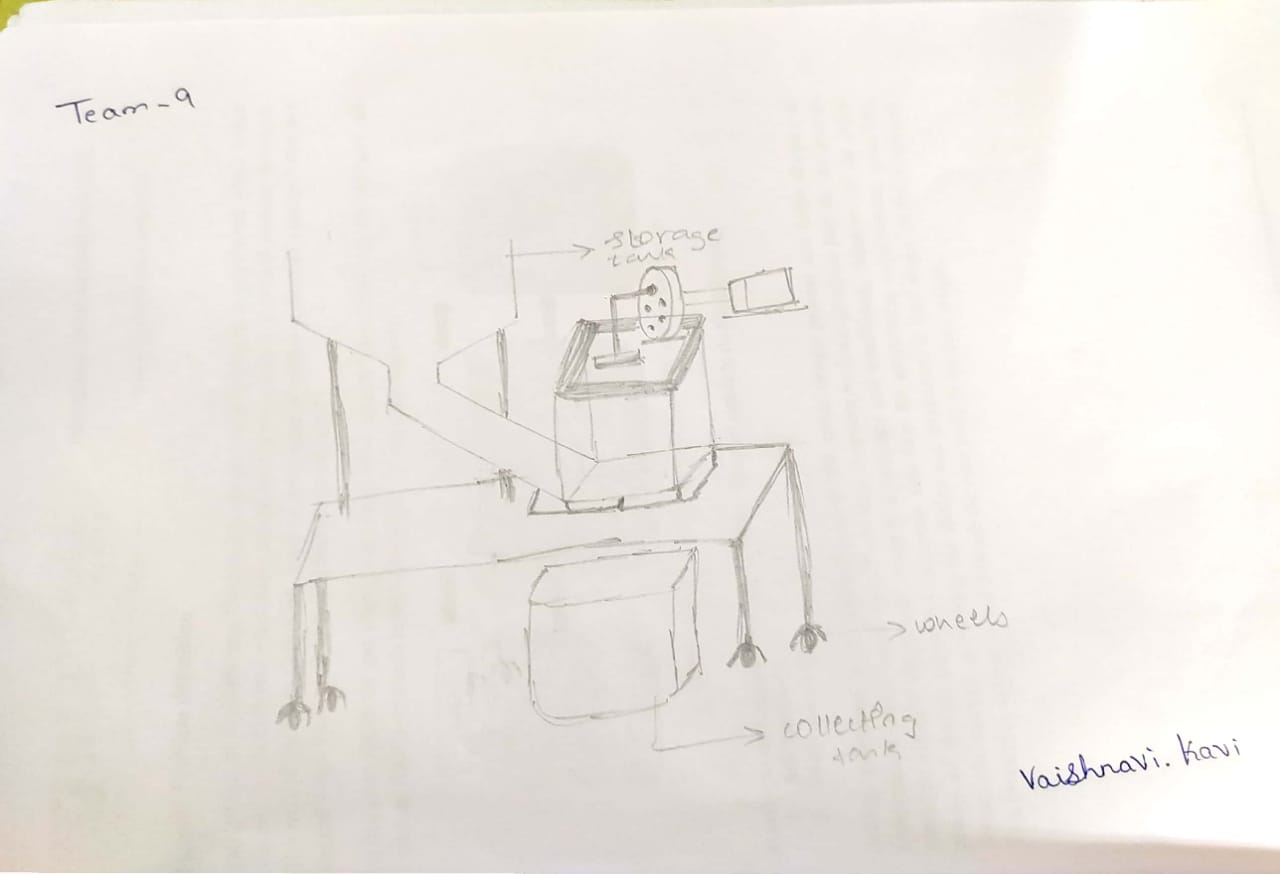 Team-9
storage
tank
wheels
collecting
tank
Vaishnavi. Kavi